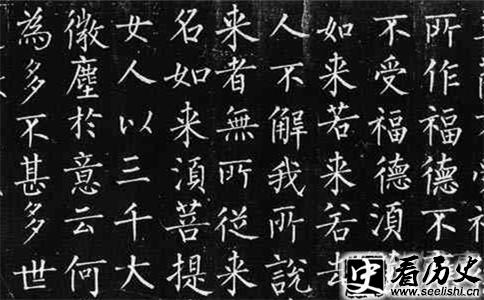 所作福德不
不受福德須
如来若来若去
人不解我所說
来者無所從来
名如来須菩提
女人以三千大
微塵於意云何
為多不甚多世
史 看历史
www.seelishi.cn